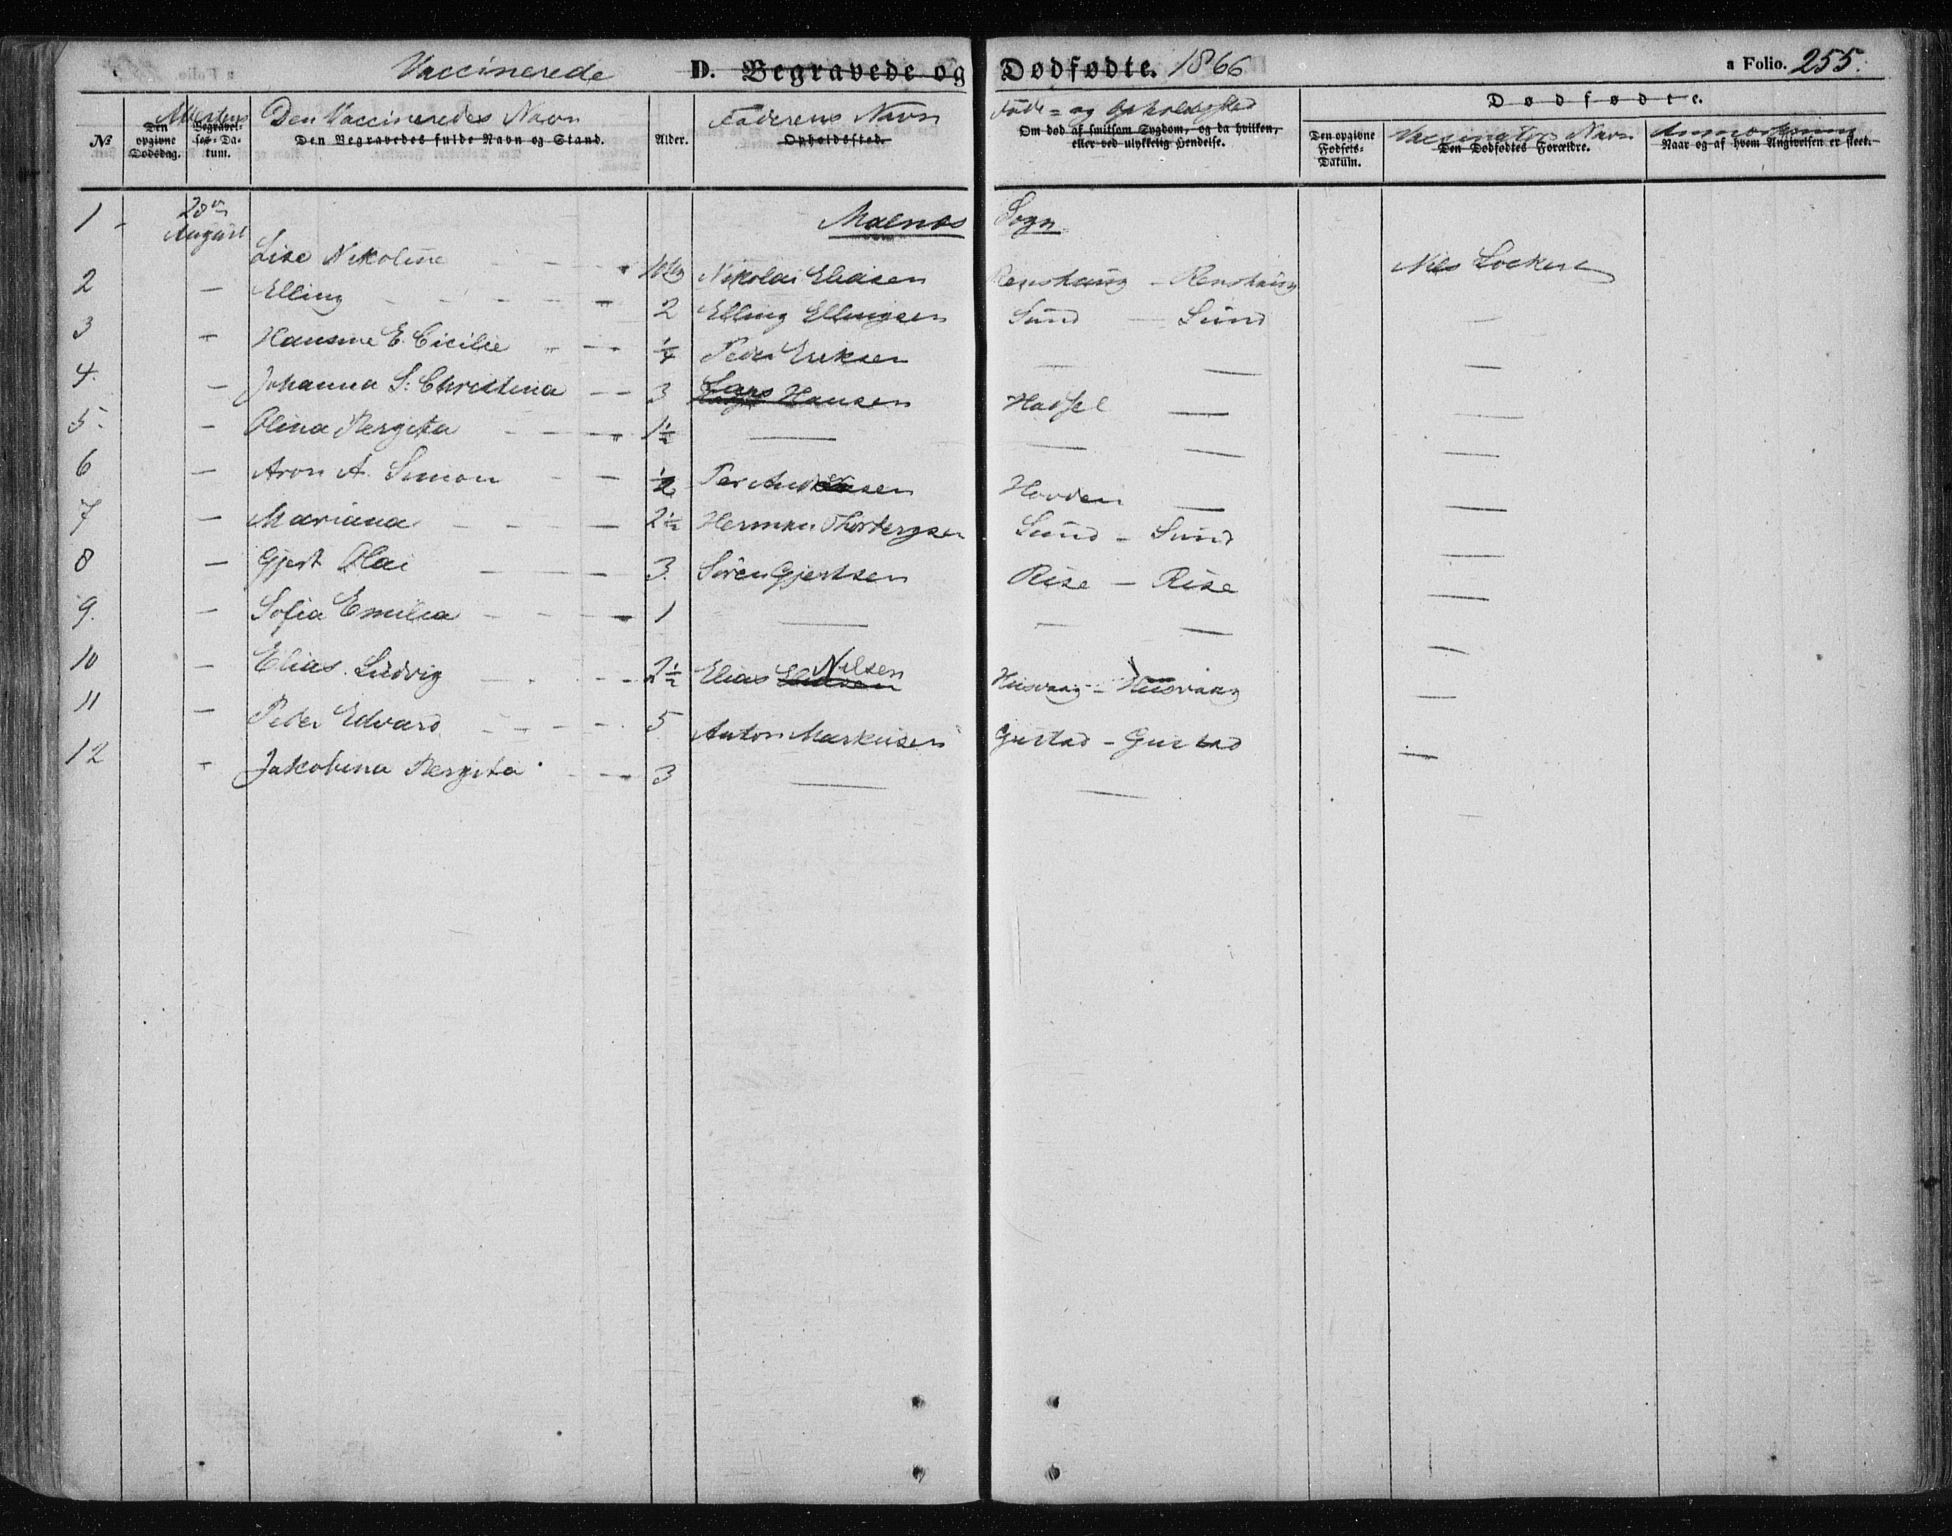 Vaccinerede D. Begravede og Dødfødte. 1866 a Folio. 255.
Den Vaccineredes Navn Faderens Navn Føde- og Opholdssted Dødfødte.
№ Den opgivne Dødsdag. Begravelses-Datum. Den Begravedes fulde Navn og Stand. Alder. Opholdssted. Om død af smitsom Sygdom, og da hvilken, eller ved ulykkelig Hendelse. Den opgivne Fødsels-Datum. Vaccinators Navn Den Dødfødtes Forældre. Anmærkning Naar og af hvem Angivelsen er skeet.
1 - 28de August Malnes Sogn
Lise Nikoline Nikolai Eliasen Renshaug - Renshaug Nils Lockert
2 — Elling 2 Elling Ellingsen Sund — Sund —
3 " Hansine E. Cicilie 1/4 Peder Eriksen — — —
4. — Johanna S: Christina 3 Lars Hansen Hadsel — —
5. — Olina Bergita 1 1/2 — — — —
6 — Aron A. Simon 1/2 Per Hovden — —
7 — Mariana 2 1/2 Herman Thorbergsen Sund - Sund —
8 — Gjert Olai 3. Sören Gjertsen Rise — Rise —
9. — Sofia Emilia 1 — — — —
10 — Elias Ludvig 2 1/2 Elias Nilsen Husvaag - Husvaag —
11 — Peder Edvard 5 Anton Markusen Gustad - Gustad —
12 " Jakobina Bergita 3 — — —